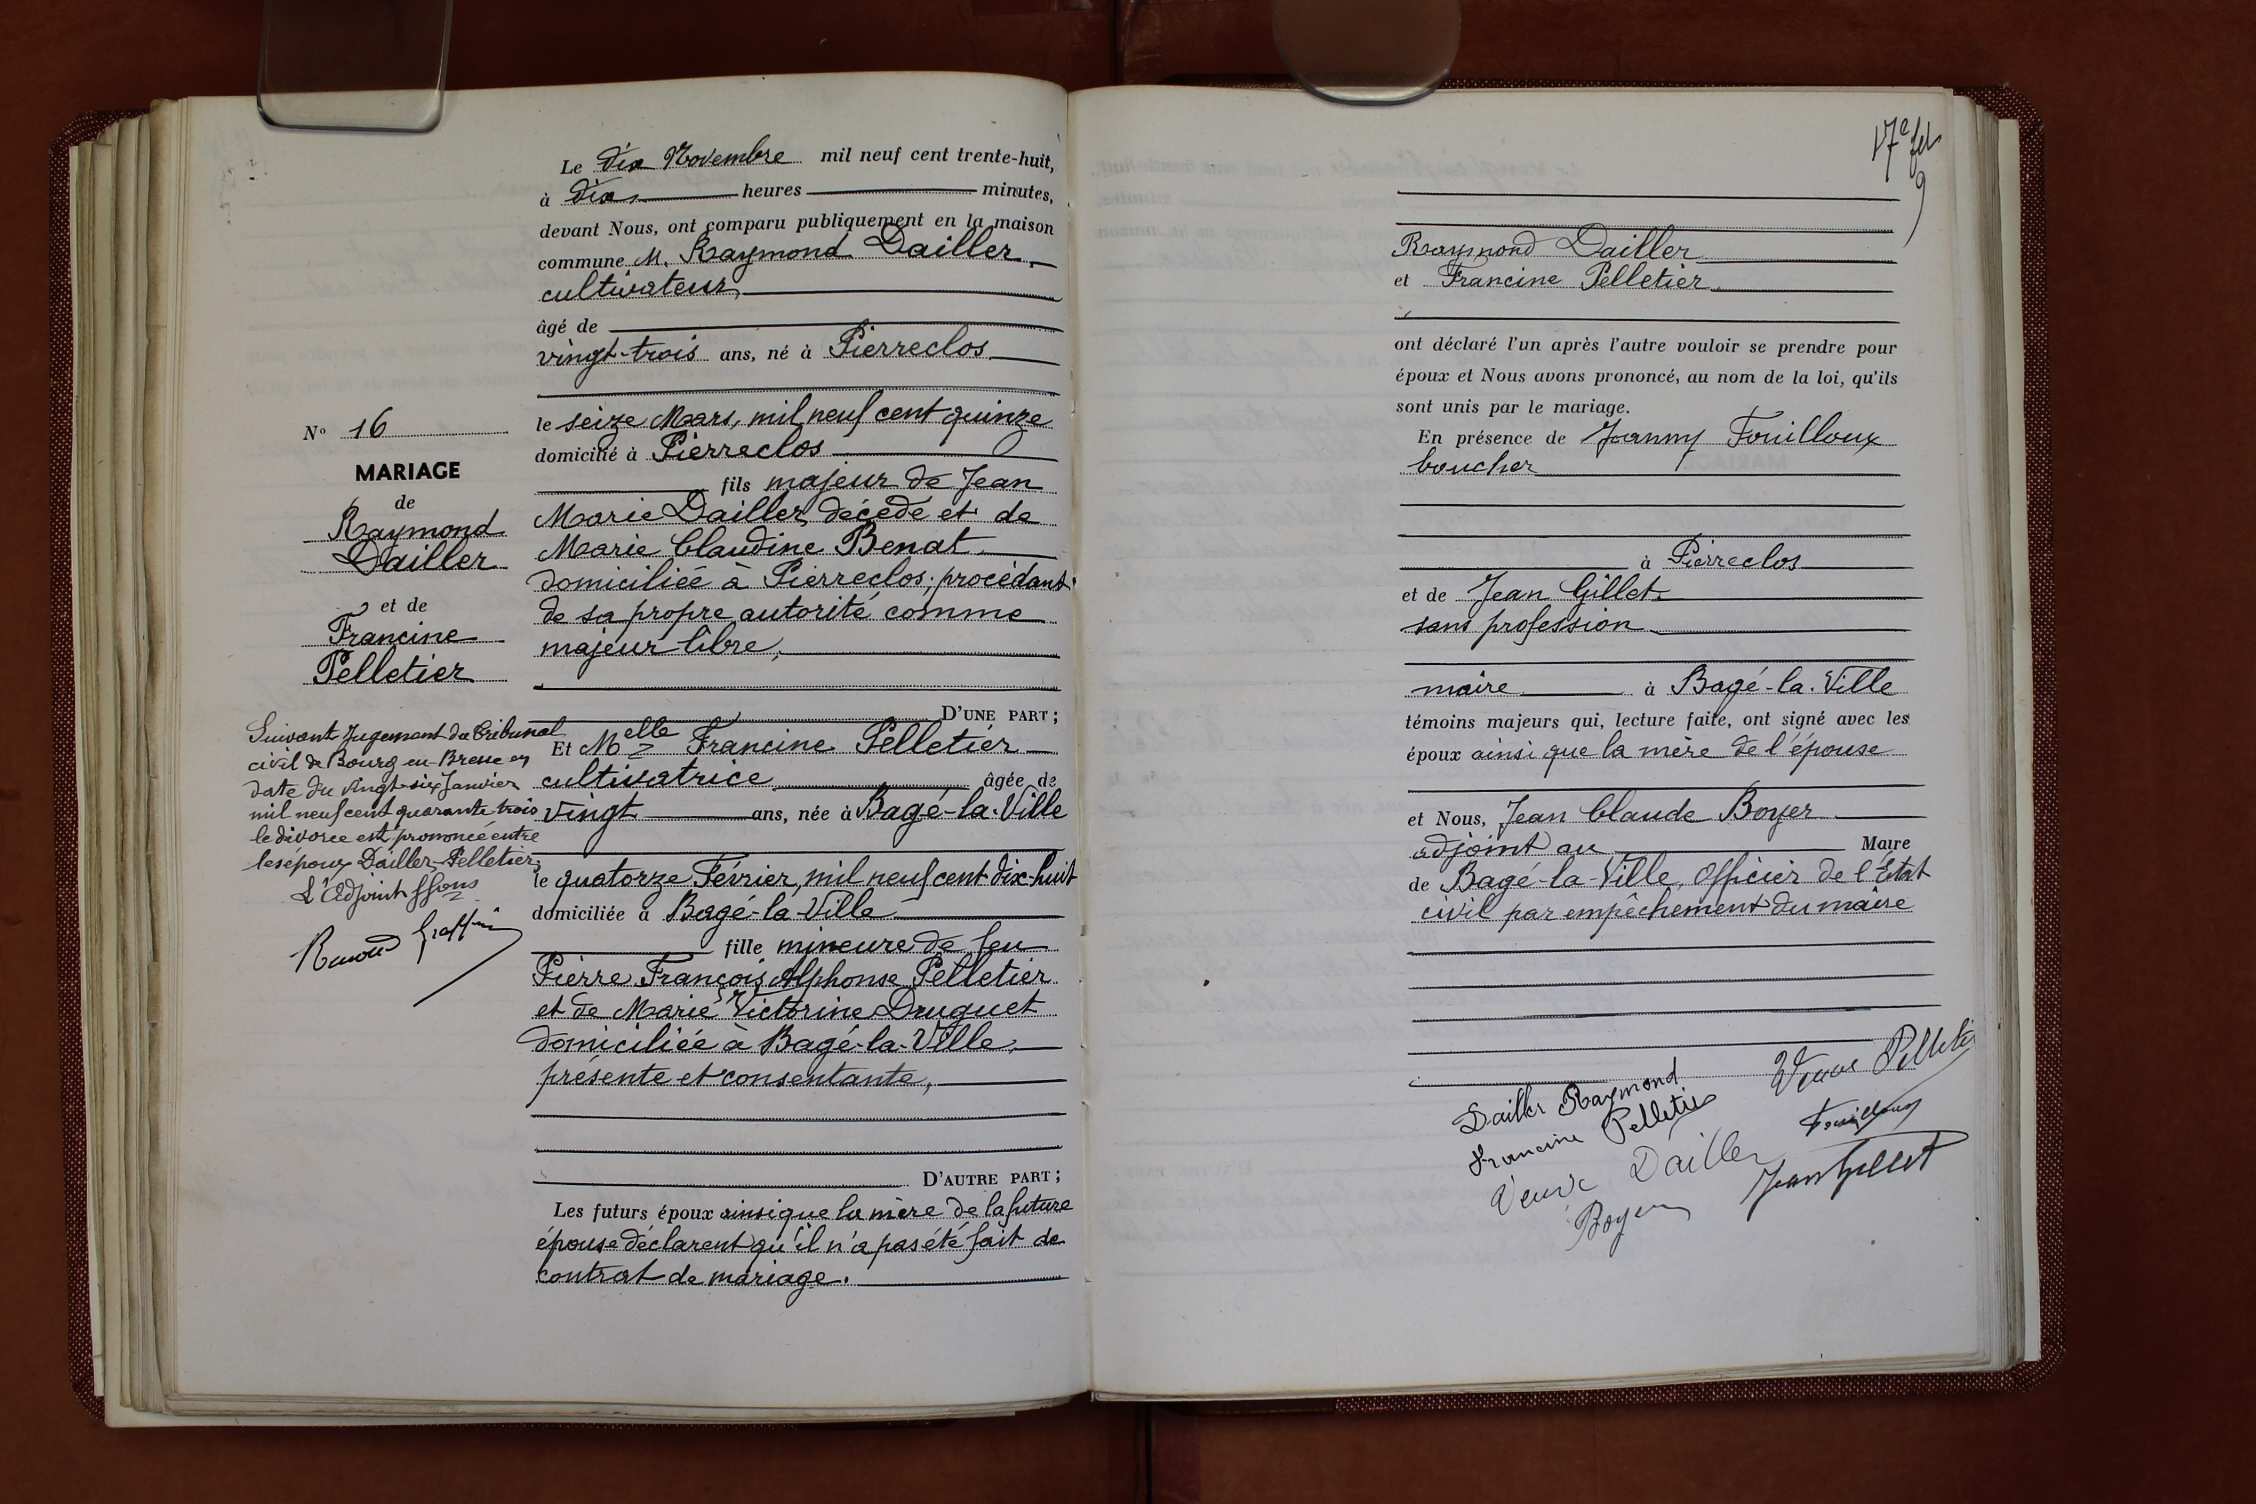 Le dix Novembre mil neuf cent trente-huit,
à dix heures minutes,
devant Nous, ont comparu publiquement en la maison
commune M. Raymond Dailler,
cultivateur,
âgé de
vingt-trois ans, né à Pierreclos
le seize Mars, mil neuf cent quinze
domicilié à Pierreclos
fils majeur de Jean
Marie Dailler, décédé et de
Marie Claudine Benat
domiciliée à Pierreclos; procédant
de sa propre autorité comme
majeur libre,
D'UNE PART;
Et Melle Francine Pelletier
cultivatrice âgée de
vingt ans, née à Bagé-la-Ville
le quatorze Février, mil neuf cent dix-huit
domiciliée à Bagé-la-Ville
fille mineure de feu
Pierre François Alphonse Pelletier
et de Marie Victorine Druguet
domiciliée à Bagé-la-Ville,
présente et consentante,
D'AUTRE PART;
Les futurs époux ainsi que la mère de la future
épouse déclarent qu'il n'a pas été fait de
contrat de mariage.
No 16
MARIAGE
de
Raymond
Dailler
et de
Francine
Pelletier
Suivant Jugement du Tribunal
civil de Bourg-en-Bresse en
date du vingt-six Janvier
mil neuf cent quarante trois
le divorce est prononcé entre
les époux Dailler-Pelletier
L'Adjoint
17e
Raymond Dailler
et Francine Pelletier
ont déclaré l'un après l'autre vouloir se prendre pour
époux et Nous avons prononcé, au nom de la loi, qu'ils
sont unis par le mariage.
En présence de Joanny Fouilloux
boucher
à Pierreclos
et de Jean Gillet
sans profession
maire à Bagé-la-Ville
témoins majeurs qui, lecture faite, ont signé avec les
époux ainsi que la mère de l'épouse
et Nous, Jean Claude Boyer
adjoint au Maire
de Bagé-la-Ville, Officier de l'Etat
civil par empêchement du maire
Dailler Raymond
Veuve Pelletier
Francine Pelletier
Fouilloux
Veuve Dailler
Jean Gillet
Boyer